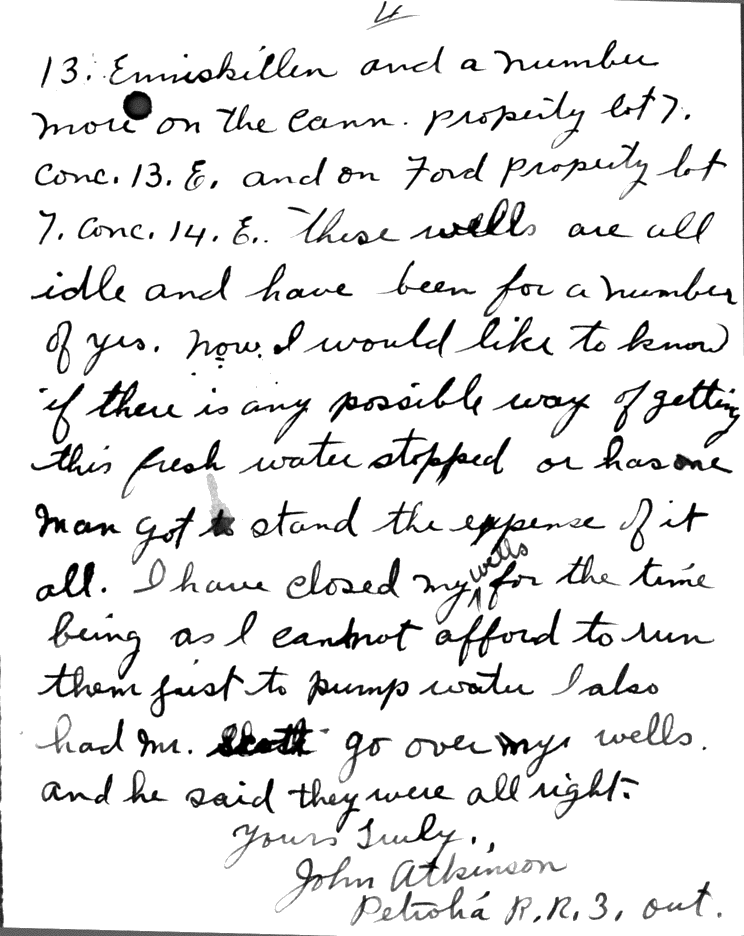 4
13. Enniskillen and a number
more on the Cann. property lot 7.
Conc. 13. E. and on Ford property lot
7. Conc. 14. E.. These wells are all
idle and have been for a number
of yrs. Now. I would like to know
if there is any possible way of getting
this fresh water stopped or has one
man got to stand the expense of it
all. I have closed my wells for the time
being as I cannot afford to run
them just to pump water I also
had Mr. Scott go over my wells.
and he said they were all right.
Yours Truly.,
John Atkinson
Petrolia R.R. 3. Ont.